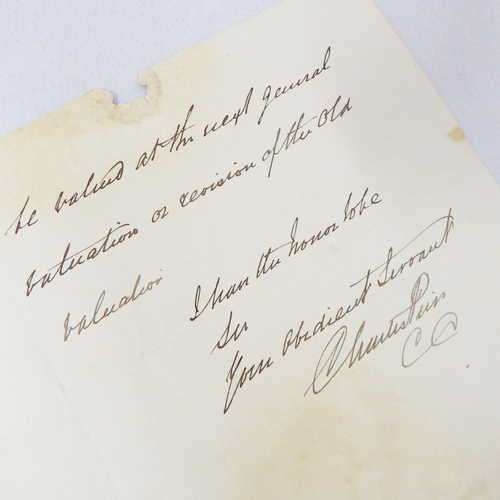 be valued at the next general
valuation or revision of the Old
valuation
I have the honor to be
Sir
Your Obedient Servant
Charles